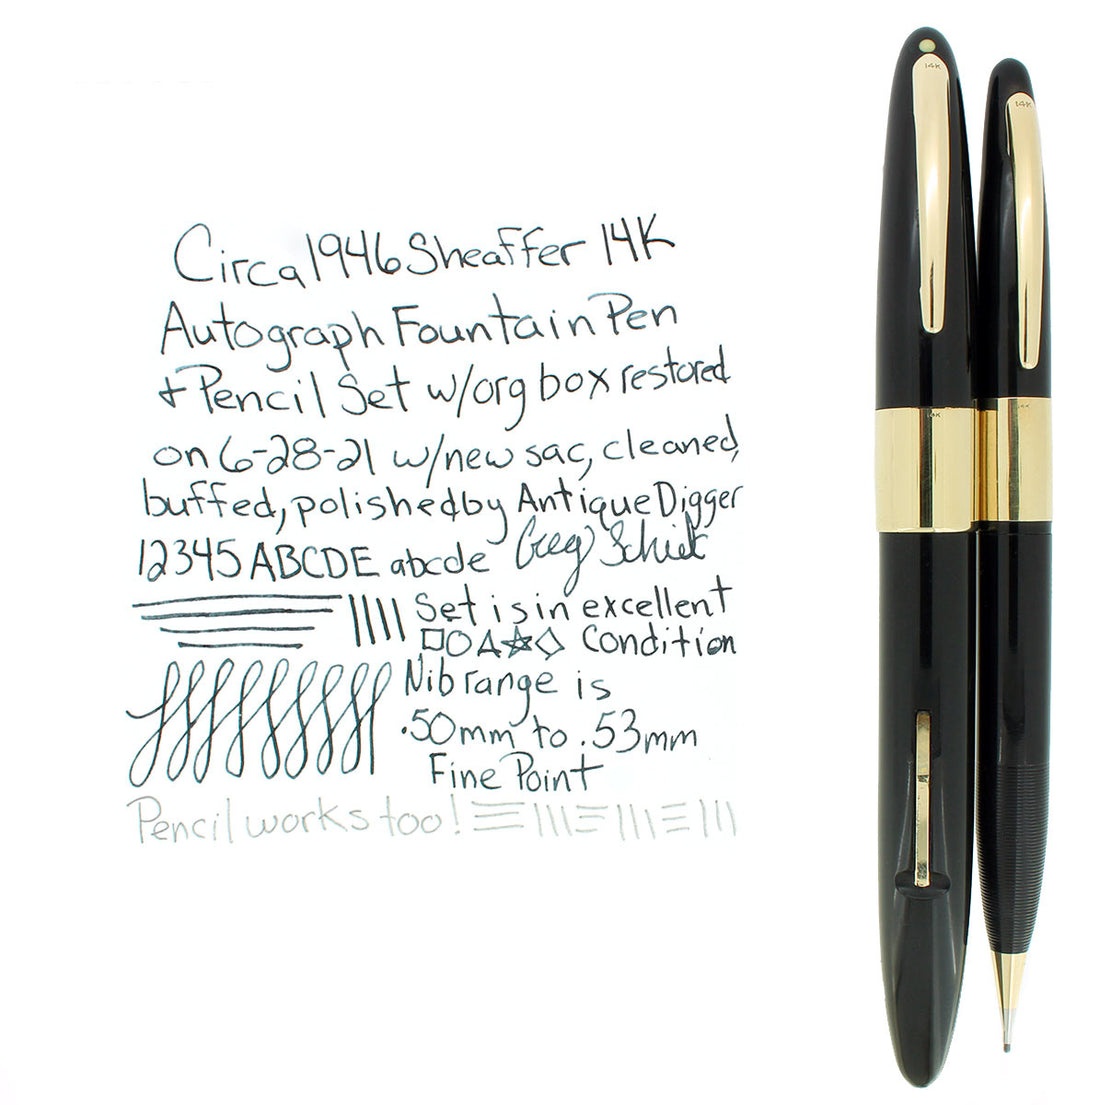 Circa 1946 Sheaffer 14K
Autograph Fountain Pen
+ Pencil Set w/org box restored
on 6-28-21 w/new sac, cleaned,
buffed, polished by Antique Digger
12345 ABCDE abcde Greg
Set is in excellent
Condition
Nib range is
.50mm to .53mm
Fine Point
Pencil works too!
14K
14K
14K